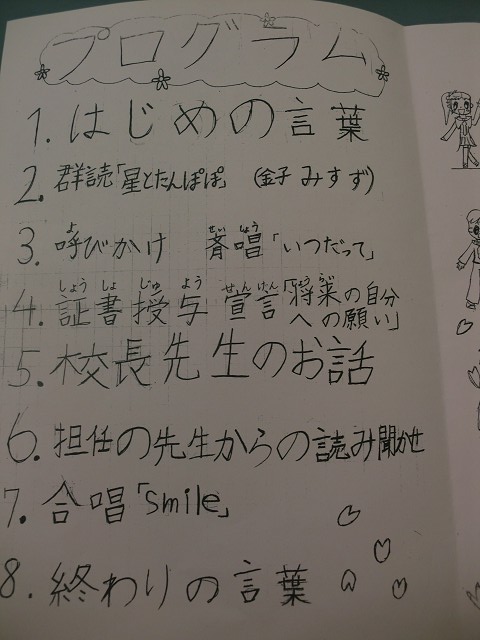 プログラム
1. はじめの言葉
2. 群読「星とたんぽぽ」 (金子 みすず)
よ せいしょう
3. 呼びかけ 斉唱「いつだって」
しょう しょ じゅ よう せんけん
4. 証書授与 宣言「将来の自分
への願い」
5. 校長先生のお話
6. 担任の先生からの読み聞かせ
7. 合唱「smile」
8. 終わりの言葉